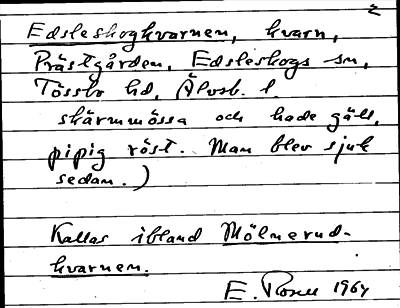 2
Edsleskogkvarnen, kvarn,
Prästgården, Edsleskogs sn,
Tössbo hd, Älvsb. l
skärmmössa och hade gäll,
pipig röst. Man blev sjuk
sedan.)
Kallas ibland Mölnerud-
kvarnen.
E. 1964